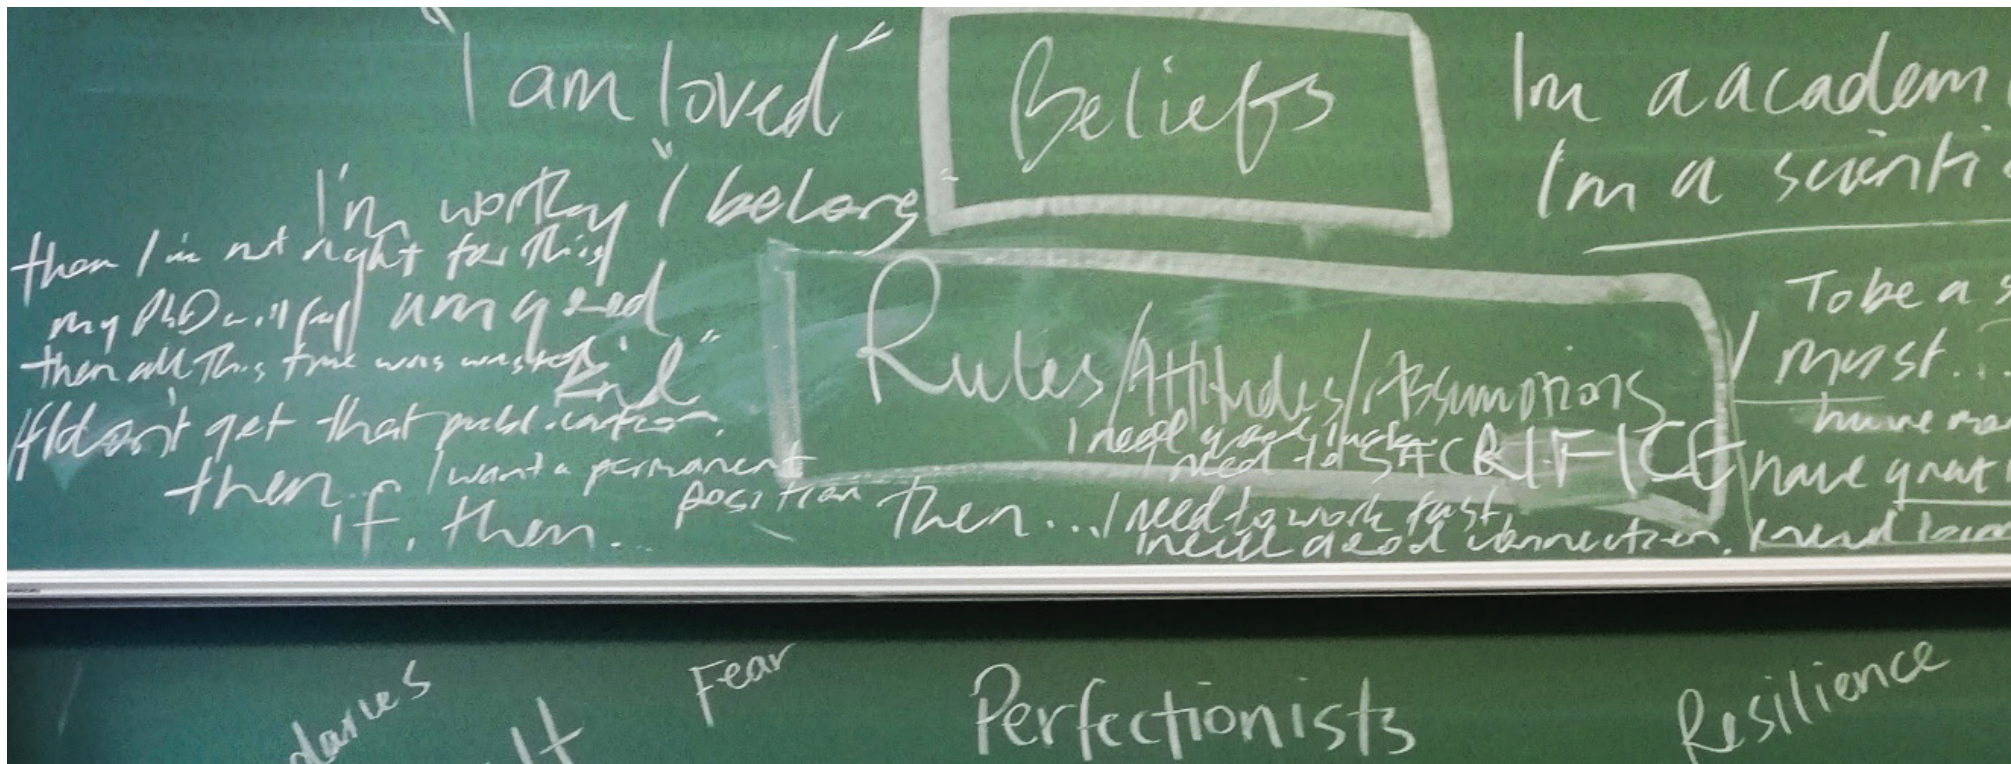 "I am loved"
Beliefs
I'm a academ
I'm a scienti
I'm worthy "I belong"
then I'm not right for this
my PhD will fail am good
then all this time was wasted End"
If I don't get that publication.
then... I want a permanent
position
if, then...
Rules/Attitudes/Assumptions
I need good luck
need to SACRIFICE
then... I need to work fast,
need good connection.
To be a s
I must...
have mo
have great
I need
daries
lt
Fear
Perfectionists
Resilience